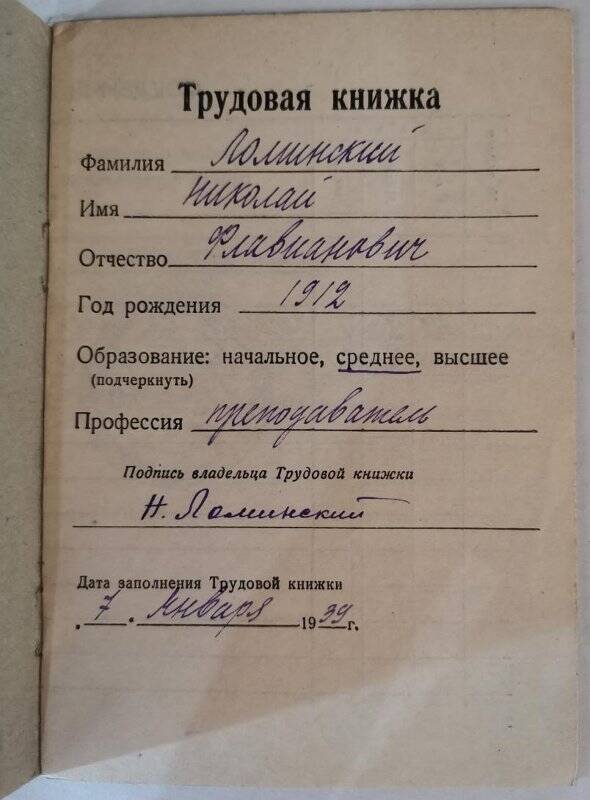 Трудовая книжка
Фамилия Ломинский
Имя Николай
Отчество Флавианович
Год рождения 1912
Образование: начальное, среднее, высшее
(подчеркнуть)
Профессия преподаватель
Подпись владельца Трудовой книжки
Н. Ломинский
Дата заполнения Трудовой книжки
7 января 1939 г.